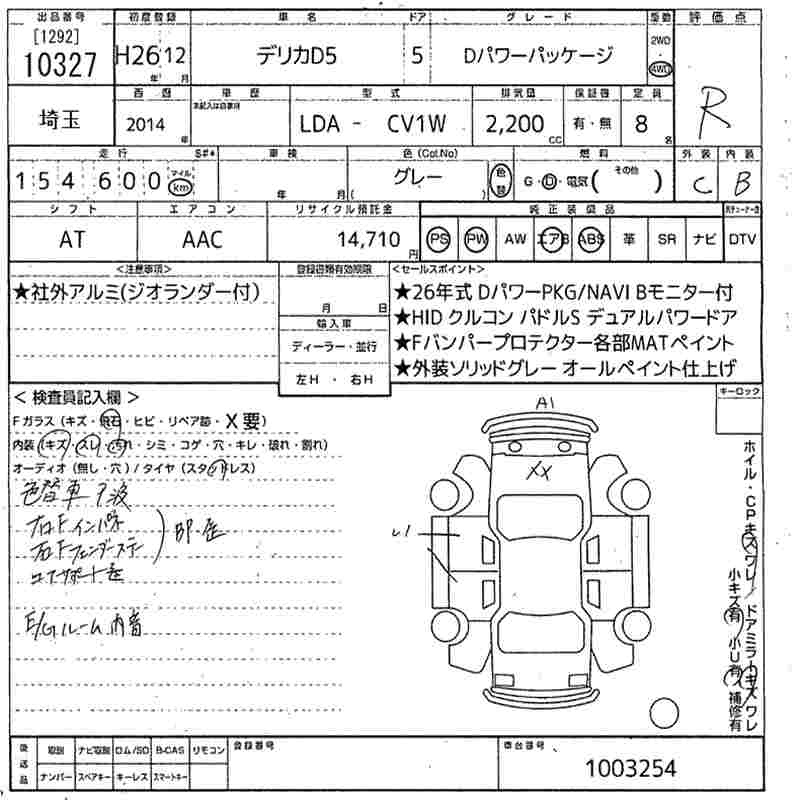 出品番号 初度登録 車名 ドア グレード 駆動 評価点
[1292]
10327 H26 12 デリカD5 5 Dパワーパッケージ 2WD・4WD
年 月
西暦 車歴 型式 排気量 保証書 定員
未記入は自家用
埼玉 2014 LDA - CV1W 2,200 有・無 8 R
年 CC 名
走行 S#* 車検 色(Col.No) 燃料 外装 内装
154600 マイル km 年 月( グレー ) 色替 G・D・電気( その他 ) C B
シフト エアコン リサイクル預託金 純正装備品
AT AAC 14,710 円 PS PW AW エアB ABS 革 SR ナビ DTV
<注意事項> 登録遅滞有効期限 <セールスポイント>
★社外アルミ(ジオランダー付)
月 日
輸入車
ディーラー・並行
左H ・ 右H
★26年式 DパワーPKG/NAVI Bモニター付
★HID クルコン パドルS デュアルパワードア
★Fバンパープロテクター各部MATペイント
★外装ソリッドグレー オールペイント仕上げ
キーロック
< 検査員記入欄 >
Fガラス(キズ・飛石・ヒビ・リペア跡・X要)
内装(キズ・スレ・汚れ・シミ・コゲ・穴・キレ・破れ・割れ)
オーディオ(無し・穴)/タイヤ(スタッドレス)
色替車 ア波
右Fフェンダーステー
コアサポート歪
E/Gルーム内音
A1
XX
ホイル・CPキズワレ/ドアミラーキズワレ
小キズ有/小U有/補修有
後送品 取説 ナビ取説 ロム/SD B-CAS リモコン 登録番号 車台番号
ナンバー スペアキー キーレス スマートキー 1003254